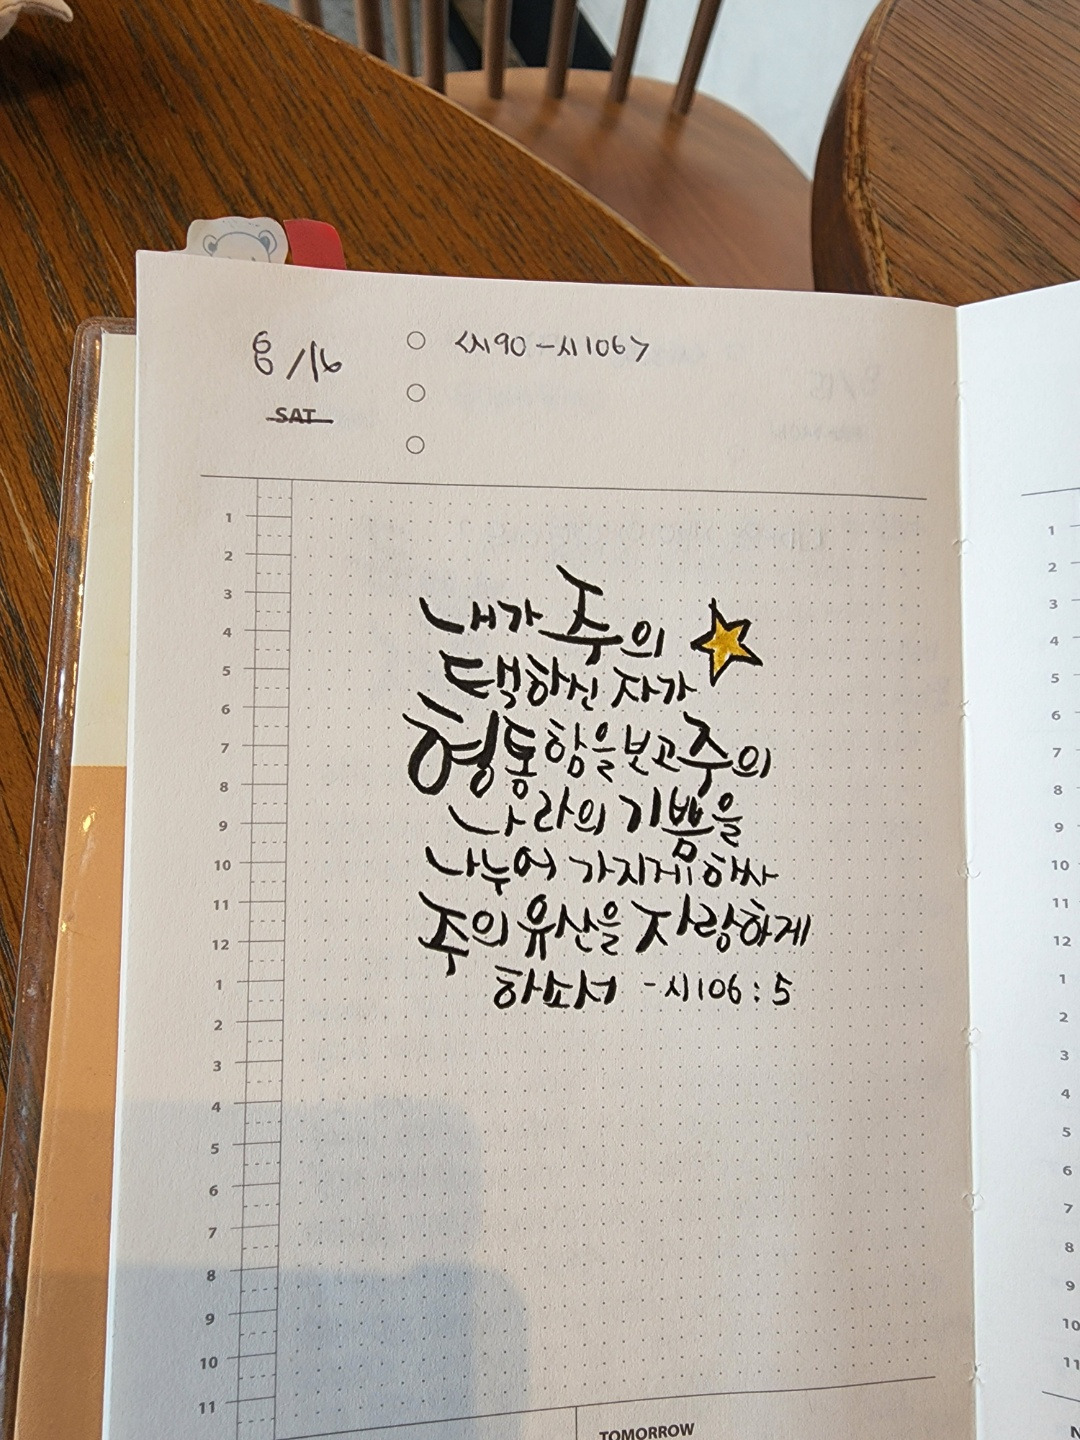 8/16
<시90-시106>
SAT
내가 주의
택하신 자가
형통함을 보고 주의
나라의 기쁨을
나누어 가지게 하사
주의 유산을 자랑하게
하소서 -시106:5
1
2
3
4
5
6
7
8
9
10
11
12
1
2
3
4
5
6
7
8
9
10
11
TOMORROW
1
2
3
4
5
6
7
8
9
10
11
12
1
2
3
4
5
6
7
8
9
10
11